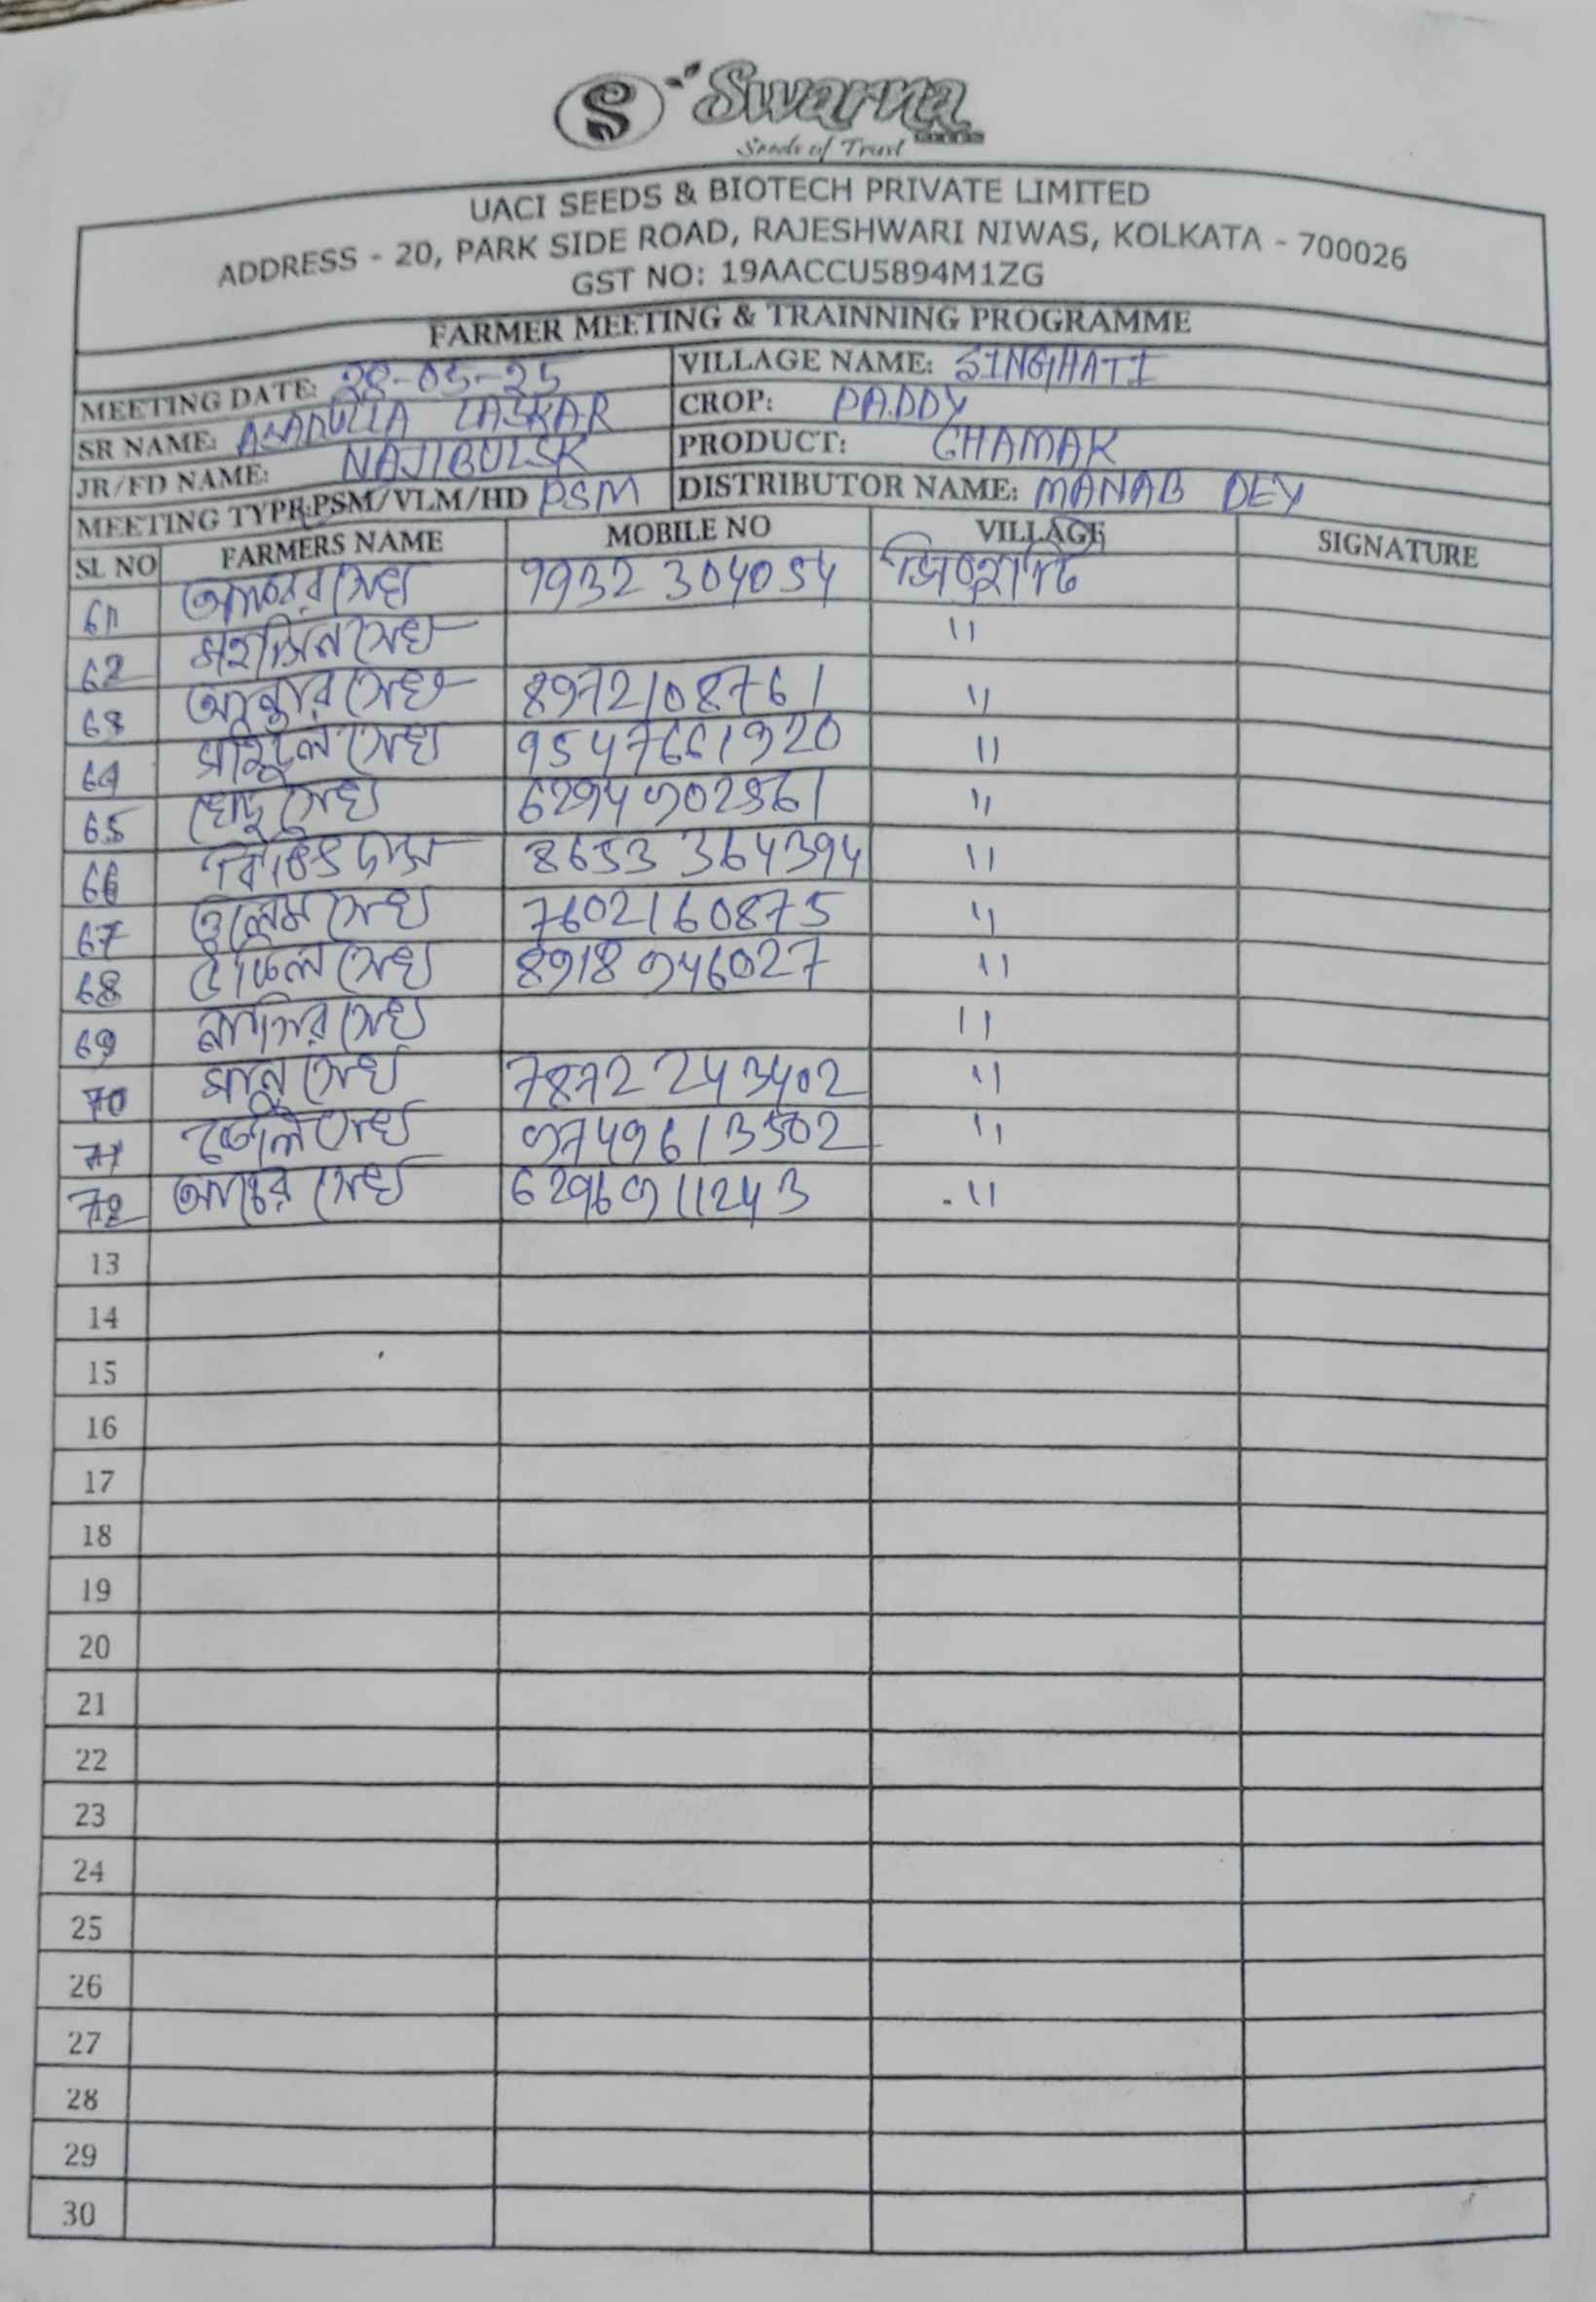 S Swarna
Seeds of Trust
UACI SEEDS & BIOTECH PRIVATE LIMITED
ADDRESS - 20, PARK SIDE ROAD, RAJESHWARI NIWAS, KOLKATA - 700026
GST NO: 19AACCU5894M1ZG
FARMER MEETING & TRAINNING PROGRAMME
MEETING DATE: 28-05-25 VILLAGE NAME: SINGHATI
SR NAME: ASADULLA LASKAR CROP: PADDY
JR/FD NAME: NAJIBUL SK PRODUCT: CHAMAK
MEETING TYPR:PSM/VLM/HD PSM DISTRIBUTOR NAME: MANAB DEY
SL NO FARMERS NAME MOBILE NO VILLAGE SIGNATURE
61 সেখ 9932 304054 সিংহাটি
62 মহসিন সেখ "
63 সেখ 8972108761 "
64 সেখ 9547661920 "
65 সেখ "
66 দাস 8653 364394 "
67 সেখ 7602160875 "
68 সেখ 8918 946027 "
69 নাসির সেখ "
70 সেখ 7872 243402 "
71 সেখ 9749613502 "
72 সেখ 6296911243 "
13
14
15
16
17
18
19
20
21
22
23
24
25
26
27
28
29
30